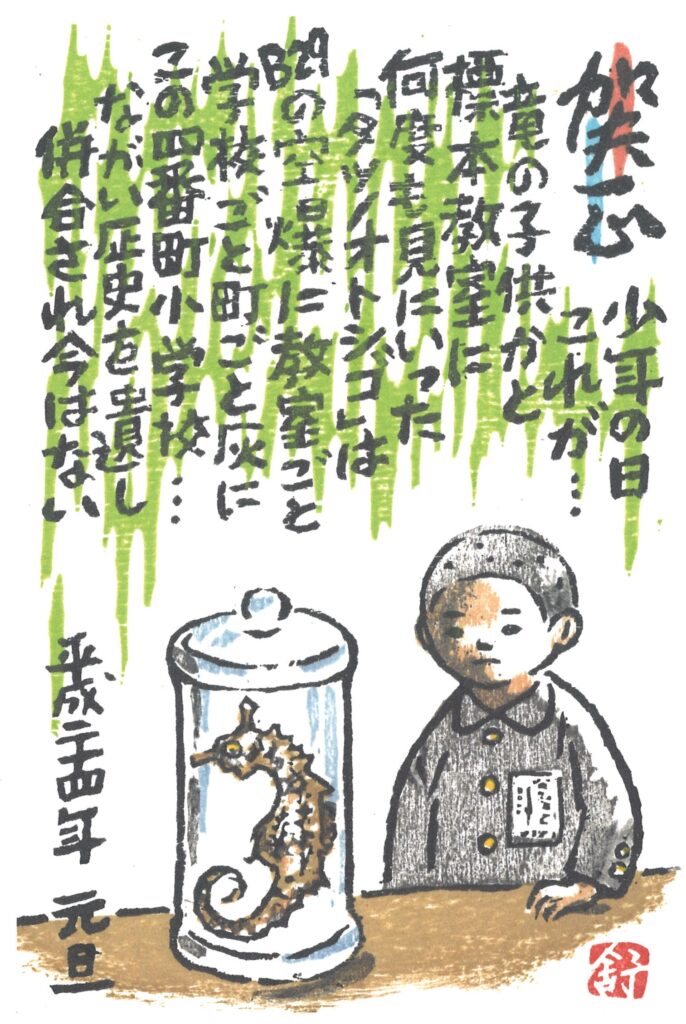 賀正
少年の日
これが…
竜の子供かと
標本教室に
何度も見にいった
「タツノオトシゴ」は
B29の空爆に教室ごと
学校ごと町ごと灰に
この四番町小学校…
ながい歴史を遺し
併合され今はない
平成二十四年 元旦
舒